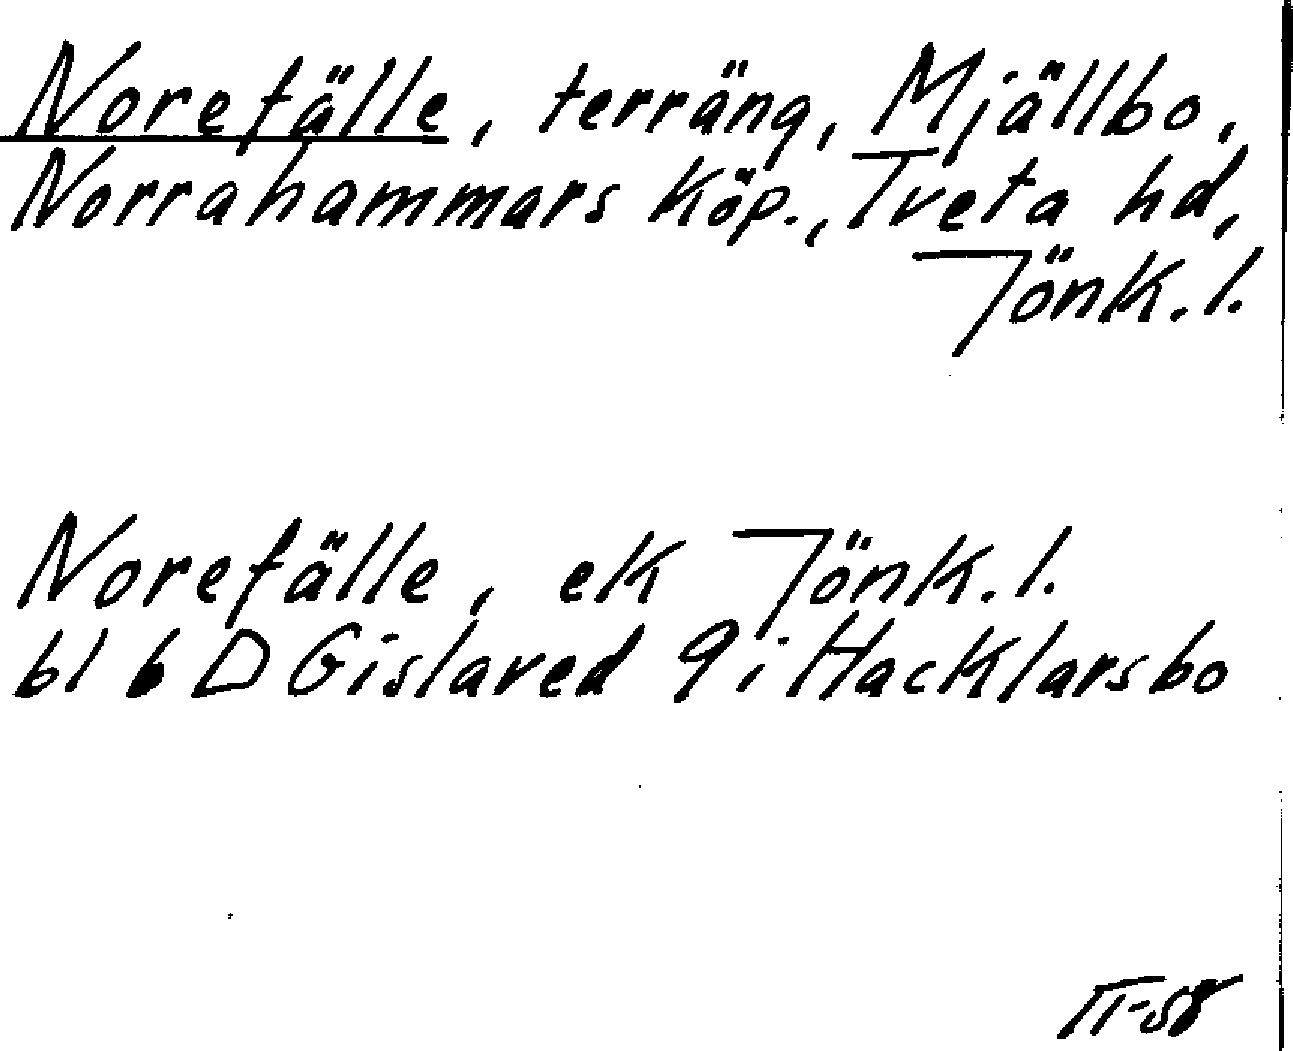 Norefälle, terräng, Mjällbo,
Norrahammars köp., Tveta hd,
Jönk. l.
Norefälle, ek Jönk. l.
bl 6 D Gislaved 9 i Hacklarsbo
II-58